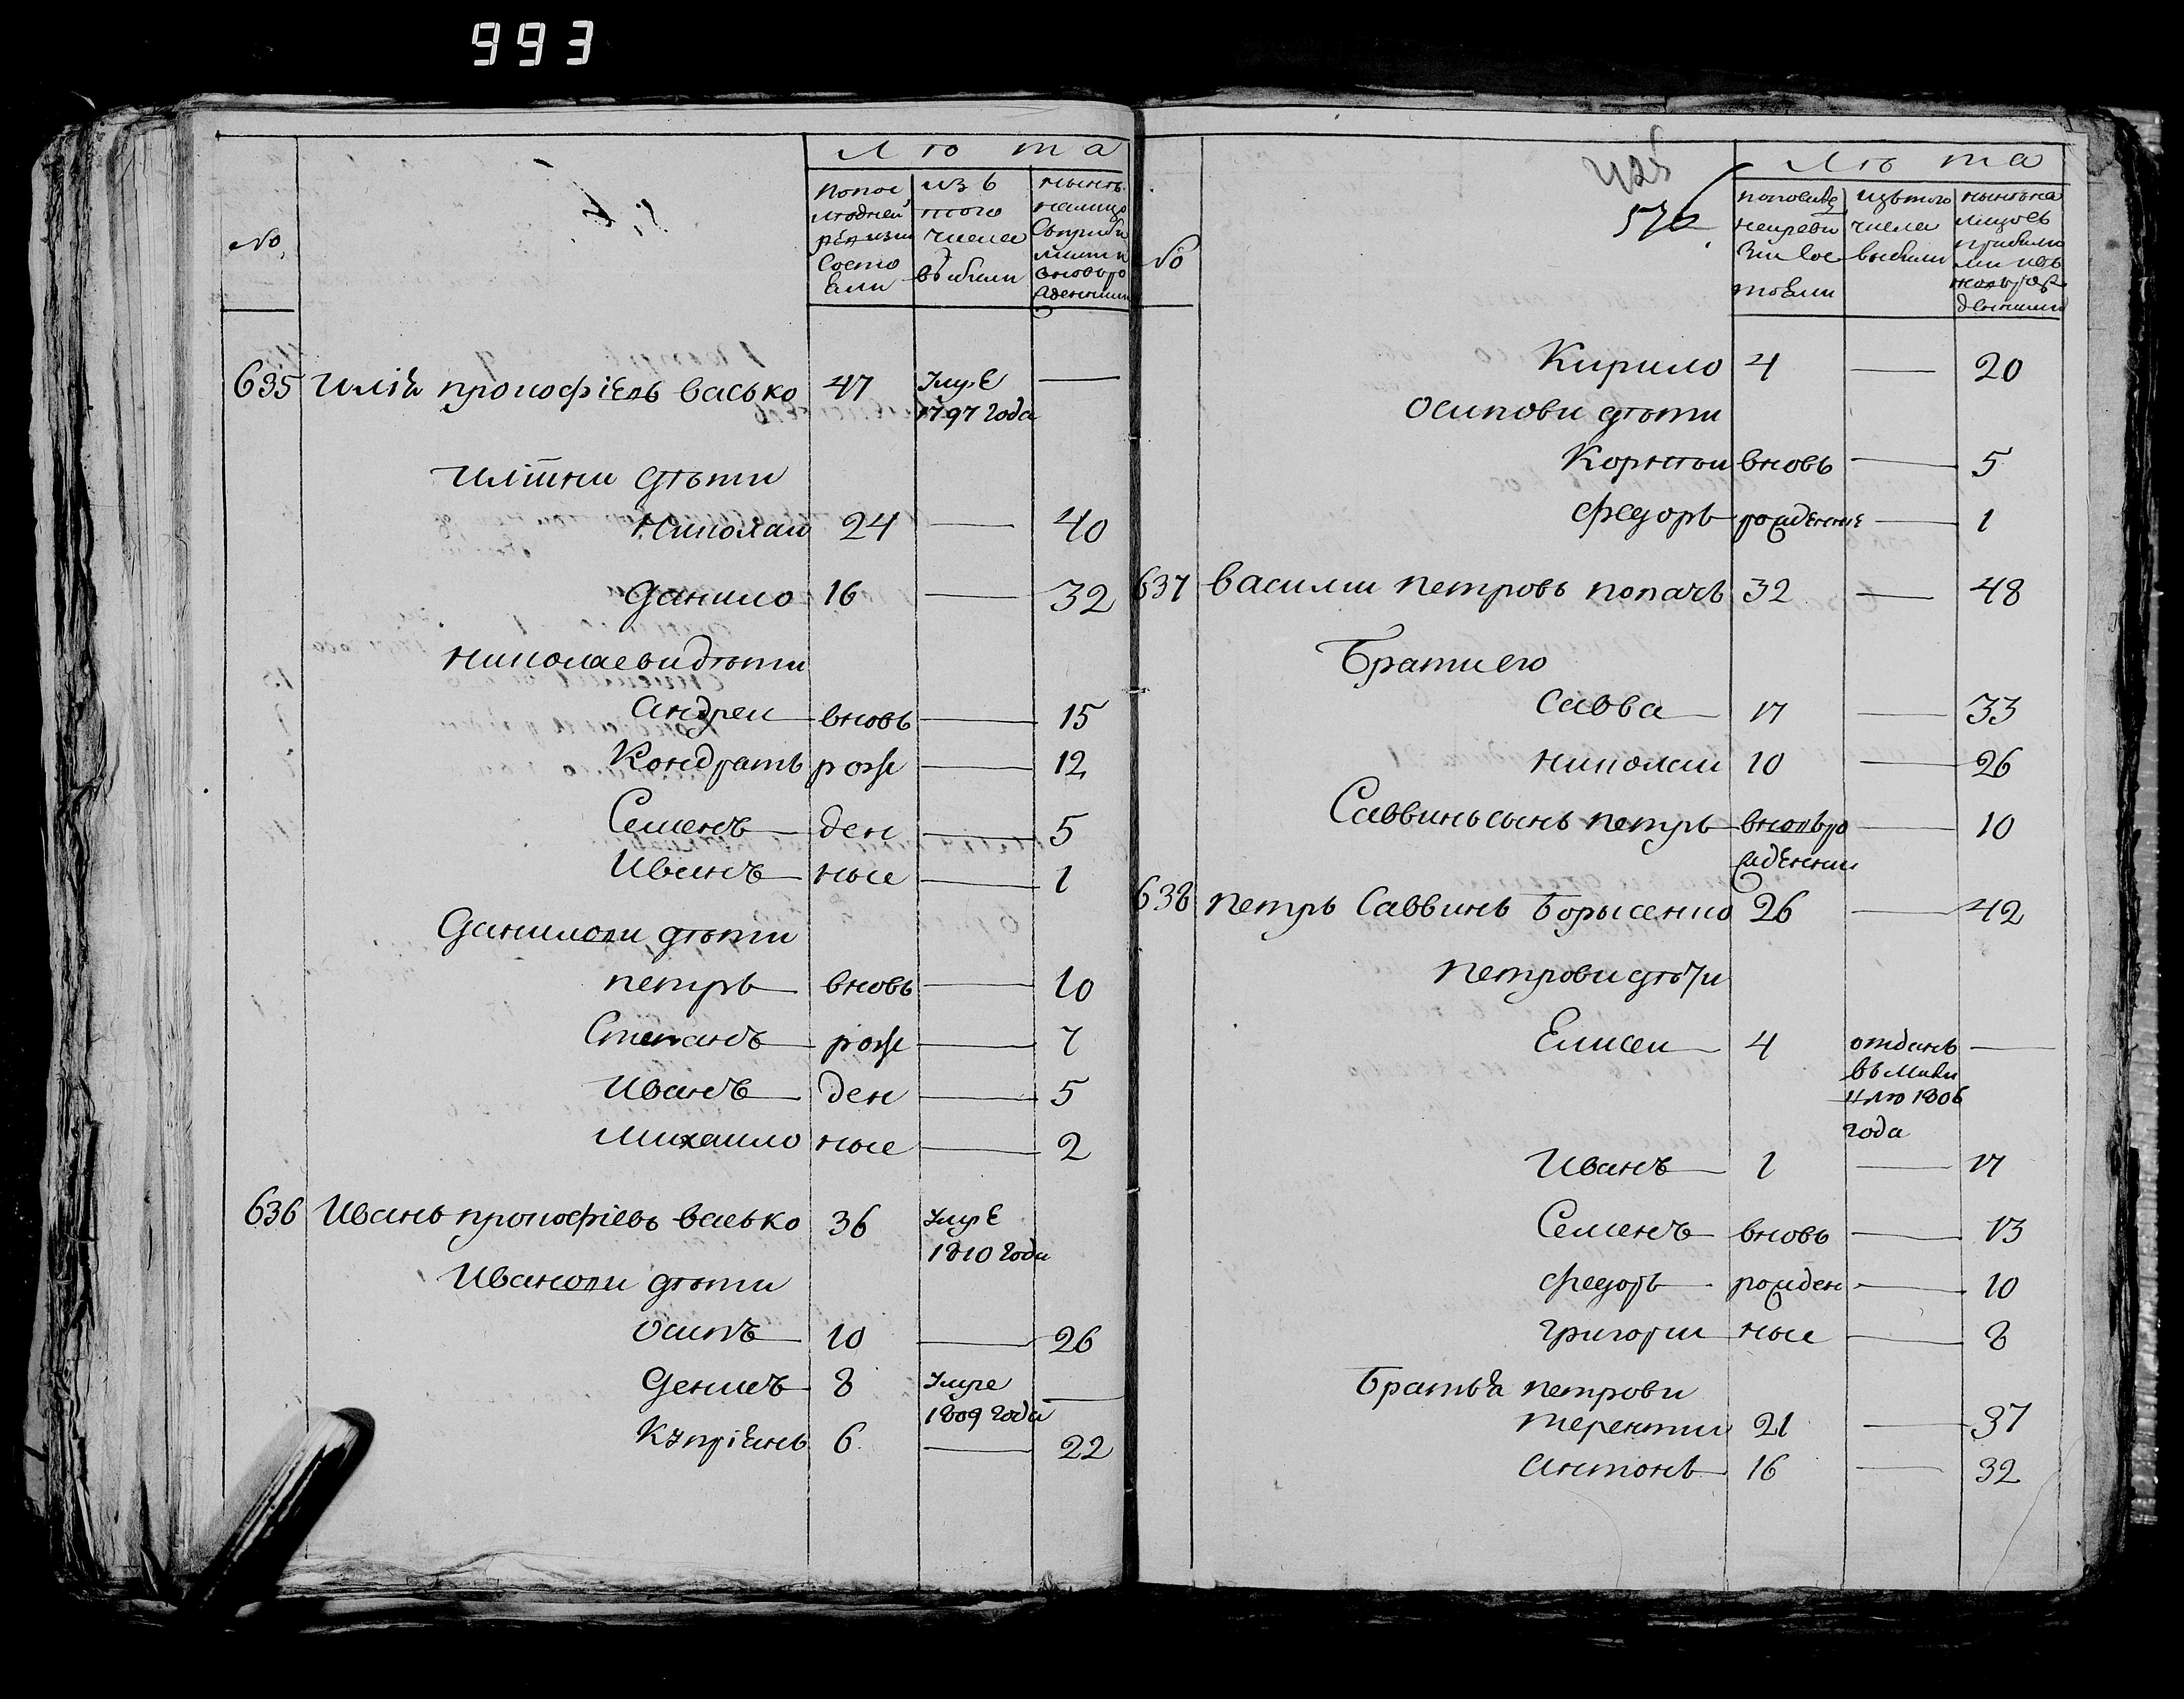 993
Лѣта
№
по пос
лѣдней
ревизіи
состо
яли
изъ
того
числа
выбыли
нынѣ
налицо
съ прибы
лыми и
вновь ро
жденными
635 Илія прокофіевъ васько 47 умре —
1797 года
Иліини дѣти
Николаи 24 — 40
Данило 16 — 32
николаеви дѣти
андреи вновь — 15
Кондратъ рож — 12
Семенъ ден — 5
Иванъ ные — 1
Данилови дѣти
петръ вновь — 10
Степанъ рож — 7
Иванъ ден — 5
Михаило ные — 2
636 Иванъ прокофіевъ васько 36 умре
1810 года
Иванови дѣти
осипъ 10 — 26
Денисъ 8 умре —
1809 года
Купріянъ 6 — 22
425
576
Лѣта
№
по послѣд
неи реви
зіи сос
тояли
изъ того
числа
выбыли
нынѣ на
лицо съ
прибылы
ми и съ
новорож
денными
Кирило 4 — 20
осипови дѣти
Корнѣи вновь — 5
федоръ рожденные — 1
637 василии петровъ копачъ 32 — 48
Брати его
савва 17 — 33
николаи 10 — 26
Саввинъ сынъ петръ вновь ро — 10
жденныи
638 петръ Саввинъ Борысенко 26 — 42
петрови дѣти
Елисеи 4 отданъ —
въ мили
цію 1806
года
Иванъ 1 — 17
Семенъ вновь — 13
федоръ рожден — 10
григории ные — 8
Братья петрови
терентии 21 — 37
антонъ 16 — 32